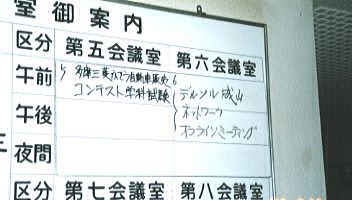 室御案内
区分 第五会議室 第六会議室
午前 多摩三菱ふそう自動車販売
コンテスト学科試験
デルソル成山
午後 ネットワーク
オンラインミーティング
夜間
区分 第七会議室 第八会議室